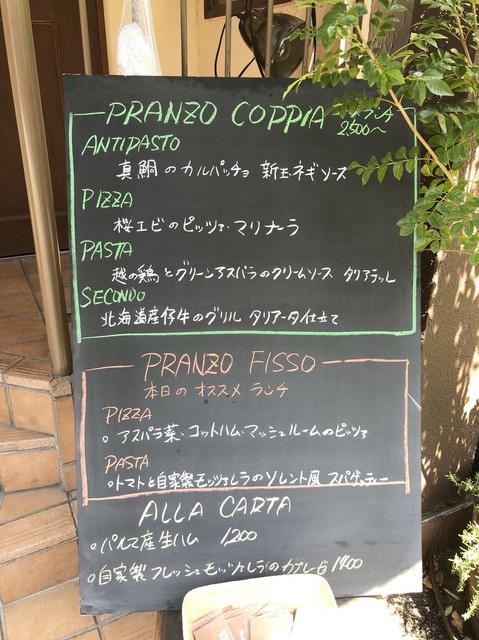 PRANZO COPPIA ランチ
2500〜
ANTIPASTO
真鯛のカルパッチョ 新玉ネギソース
PIZZA
桜エビのピッツァ・マリナーラ
PASTA
越の鶏とグリーンアスパラのクリームソース タリアテッレ
SECONDO
北海道産仔牛のグリル タリアータ仕立て
PRANZO FISSO
本日のオススメ ランチ
PIZZA
。アスパラ菜・コットハム・マッシュルームのピッツァ
PASTA
。トマトと自家製モッツァレラのソレント風 スパゲッティー
ALLA CARTA
。パルマ産生ハム 1,200
。自家製フレッシュモッツァレラのカプレーゼ 1400